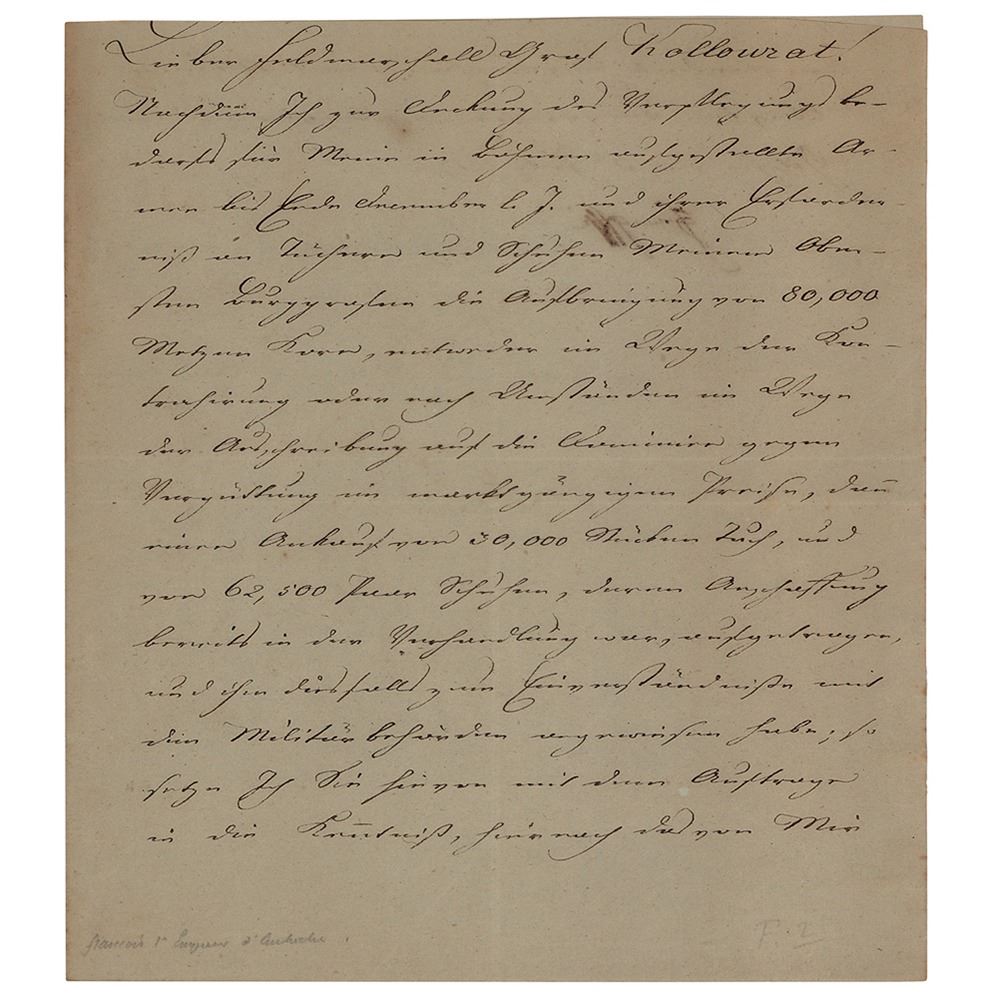 Lieber Feldmarschall Graf Kollowrat!
Nachdem Ich zur Deckung des Verpflegungsbe-
darfs für Meine in Böhmen aufgestellte Ar-
mee bis Ende Dezember l. J. und ihrer Erforder-
niß an Tüchern und Schuhen Meinem Ober-
sten Burggrafen die Aufbringung von 80,000
Metzen Korn, entweder im Wege der Kon-
trahirung oder nach Umständen im Wege
der Ausschreibung auf die Dominien gegen
Vergüttung im marktgängigen Preise, dann
einen Ankauf von 30,000 Stücken Tuch, und
von 62,500 Paar Schuhen, deren Anschaffung
bereits in der Verhandlung war, aufgetragen,
und ihn diesfalls zum Einverständniße mit
den Militärbehörden angewiesen habe; so
setze Ich Sie hievon mit dem Auftrage
in die Kenntniß, hiernach das von Mir
françois 1er Empereur d'Autriche.
F. 2